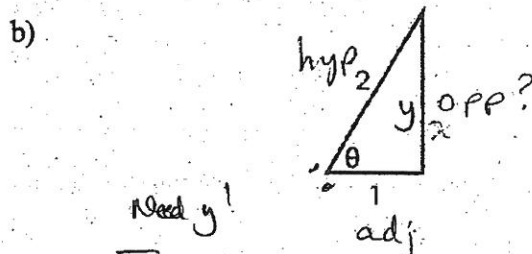 b)
hyp 2
y opp?
x
θ
1
Need y!
adj